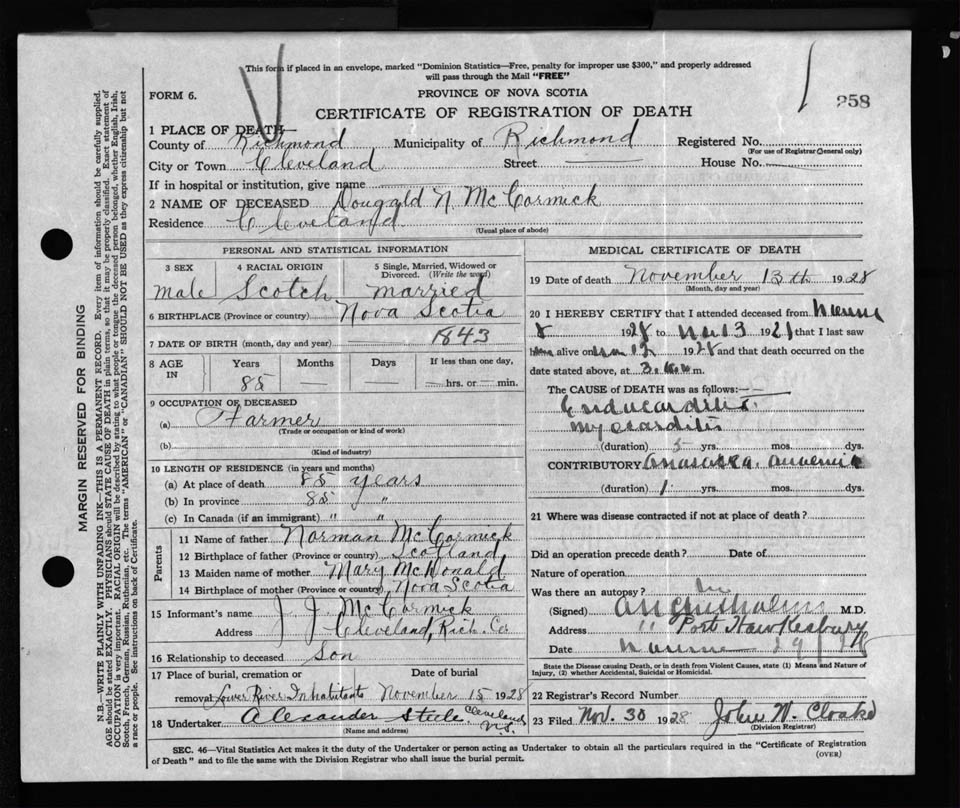 This form if placed in an envelope, marked "Dominion Statistics—Free, penalty for improper use $300," and properly addressed
will pass through the Mail "FREE"
FORM 6.
PROVINCE OF NOVA SCOTIA
258
CERTIFICATE OF REGISTRATION OF DEATH
1 PLACE OF DEATH—
County of Richmond Municipality of Richmond Registered No.
(For use of Registrar General only)
City or Town Cleveland Street House No.
If in hospital or institution, give name
2 NAME OF DECEASED Dougald N. McCormick
Residence Cleveland
(Usual place of abode)
PERSONAL AND STATISTICAL INFORMATION
3 SEX 4 RACIAL ORIGIN 5 Single, Married, Widowed or Divorced. (Write the word)
Male Scotch married
6 BIRTHPLACE (Province or country) Nova Scotia
7 DATE OF BIRTH (month, day and year) 1843
8 AGE IN Years Months Days If less than one day,
85 — — hrs. or min.
9 OCCUPATION OF DECEASED
(a) Farmer
(Trade or occupation or kind of work)
(b)
(Kind of industry)
10 LENGTH OF RESIDENCE (in years and months)
(a) At place of death 85 years
(b) In province 85 "
(c) In Canada (if an immigrant) " "
Parents
11 Name of father Norman McCormick
12 Birthplace of father (Province or country) Scotland
13 Maiden name of mother Mary McDonald
14 Birthplace of mother (Province or country) Nova Scotia
15 Informant's name J. J. McCormick
Address Cleveland, Rich. Co.
16 Relationship to deceased Son
17 Place of burial, cremation or Date of burial
removal Lower River Inhabitants November 15 1928
18 Undertaker Alexander Steele Cleveland N.S.
(Name and address)
MEDICAL CERTIFICATE OF DEATH
19 Date of death November 13th 1928
(Month, day and year)
20 I HEREBY CERTIFY that I attended deceased from
8 1928 to Nov 13 1928 that I last saw
him alive on 12 1928 and that death occurred on the
date stated above, at 3. m.
The CAUSE of DEATH was as follows:
Endocarditis
Myocarditis
(duration) 5 yrs. mos. dys.
CONTRIBUTORY Anasarka
(duration) 1 yrs. mos. dys.
21 Where was disease contracted if not at place of death?
Did an operation precede death? Date of
Nature of operation
Was there an autopsy? no
(Signed) Chisholm M.D.
Address " Port Hawkesbury
Date 29/28
State the Disease causing Death, or in death from Violent Causes, state (1) Means and Nature of
Injury, (2) whether Accidental, Suicidal or Homicidal.
22 Registrar's Record Number
23 Filed Nov. 30 1928 John W.
(Division Registrar)
SEC. 46—Vital Statistics Act makes it the duty of the Undertaker or person acting as Undertaker to obtain all the particulars required in the "Certificate of Registration
of Death" and to file the same with the Division Registrar who shall issue the burial permit.
(OVER)
MARGIN RESERVED FOR BINDING
N.B.—WRITE PLAINLY WITH UNFADING INK—THIS IS A PERMANENT RECORD. Every item of information should be carefully supplied.
AGE should be stated EXACTLY. PHYSICIANS should STATE CAUSE OF DEATH in plain terms, so that it may be properly classified. Exact statement of
OCCUPATION is very important. RACIAL ORIGIN will be described by stating to what people or tongue the deceased person belonged, whether English, Irish,
Scotch, French, German, Russian, Ruthenian, etc. The terms "AMERICAN" or "CANADIAN" SHOULD NOT BE USED as they express citizenship but not
a race or people. See instructions on back of Certificate.